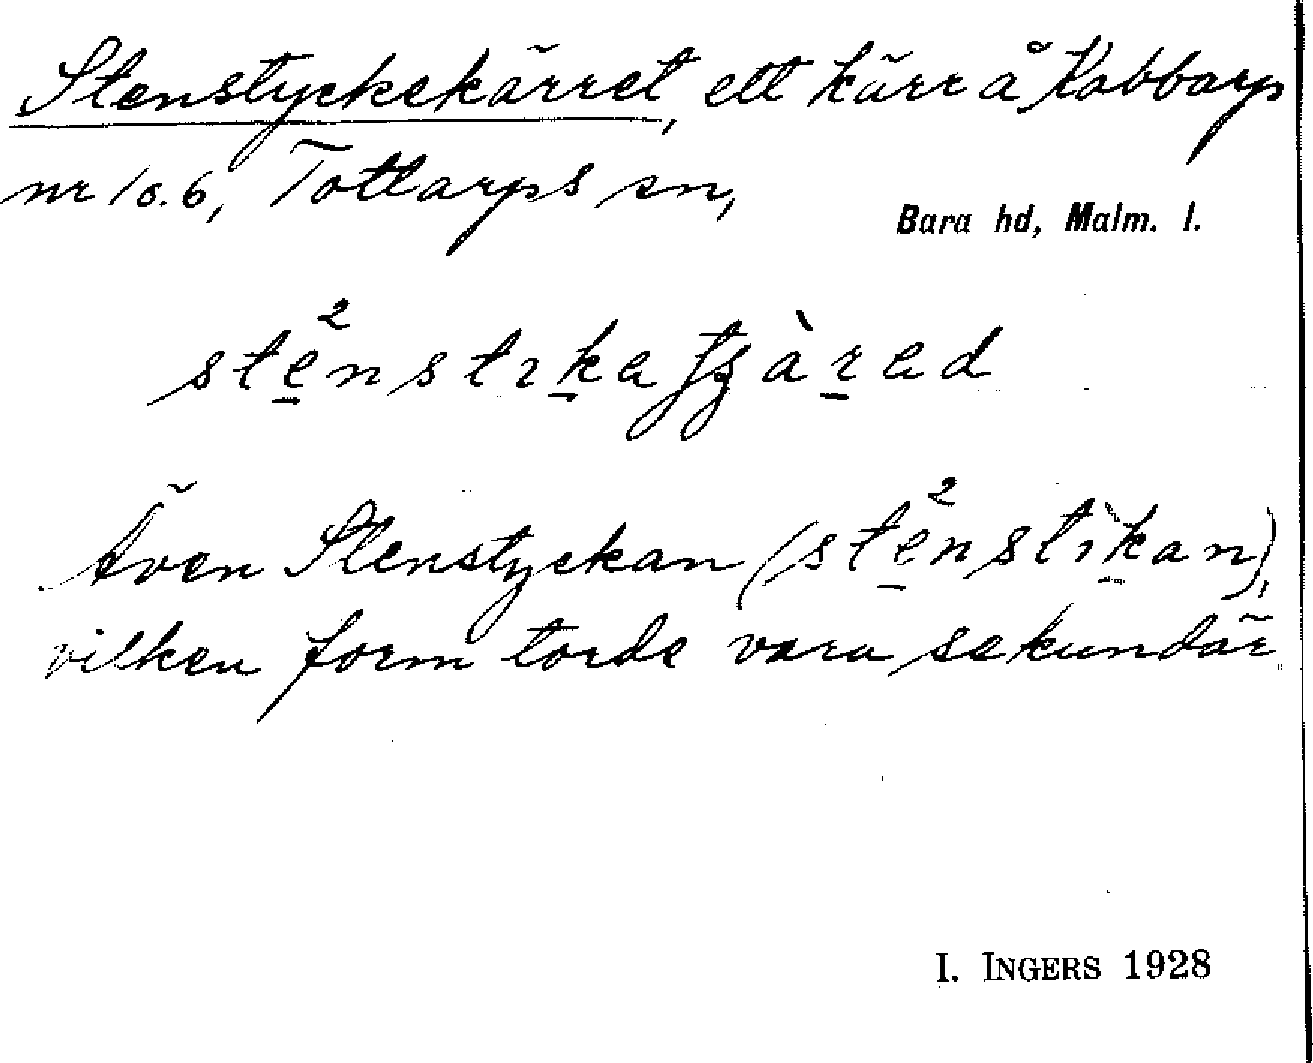 Stenstyckekärret, ett kärr å Kabbarp
nr 10.6, Tottarps sn,
Bara hd, Malm. l.
Även Stenstyckan (stęnstıkan),
vilken form torde vara sekundär
I. INGERS 1928